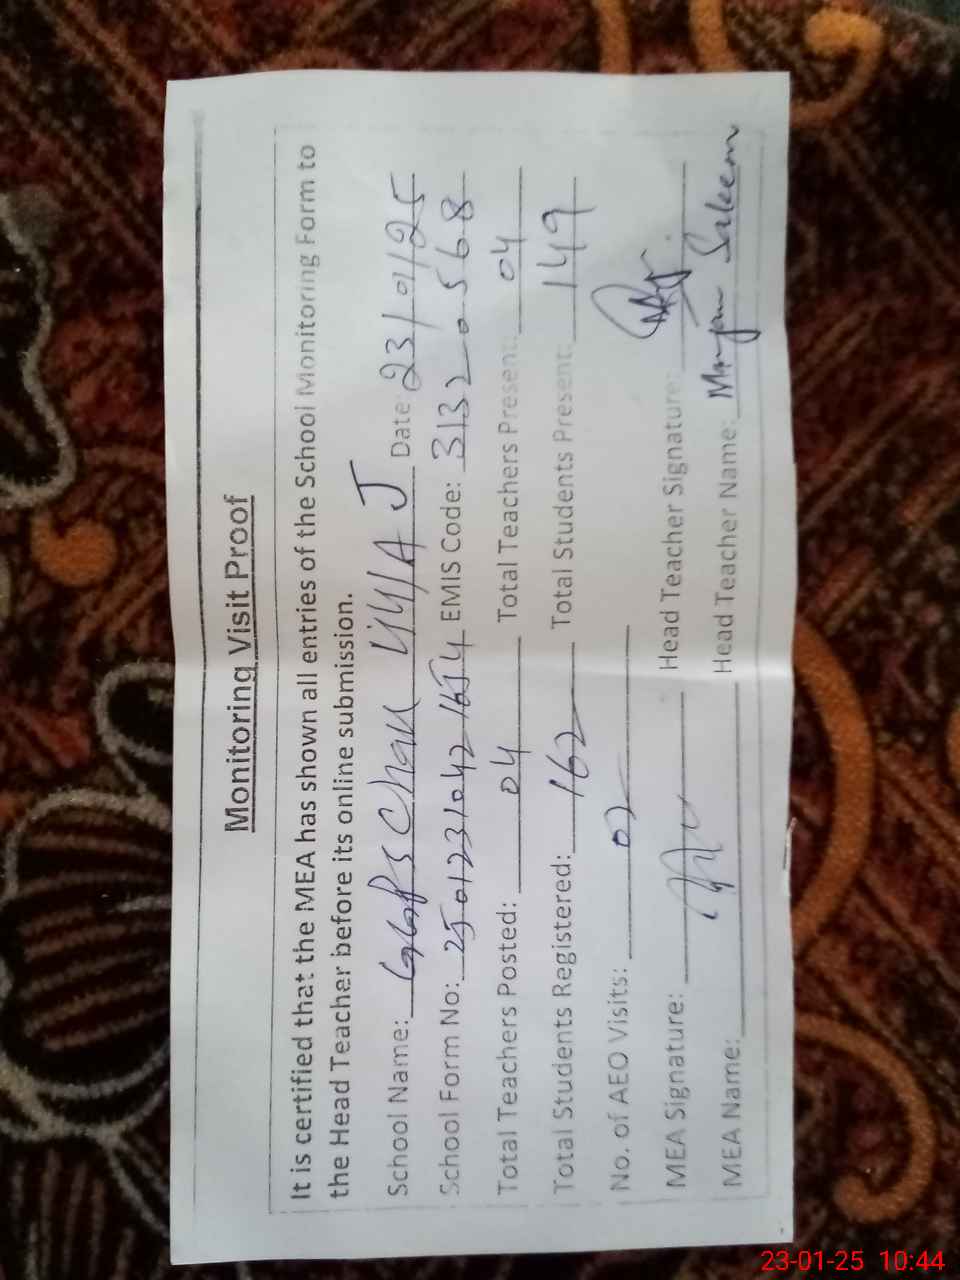 Monitoring Visit Proof
It is certified that the MEA has shown all entries of the School Monitoring Form to
the Head Teacher before its online submission.
School Name: GGPS Chak 114/A J Date: 23/01/25
School Form No: 25012310421654 EMIS Code: 31320568
Total Teachers Posted: 04 Total Teachers Present: 04
Total Students Registered: 162 Total Students Present: 149
No. of AEO Visits: 02
MEA Signature: Head Teacher Signature:
MEA Name: Head Teacher Name: Maryam Saleem
23-01-25 10:44